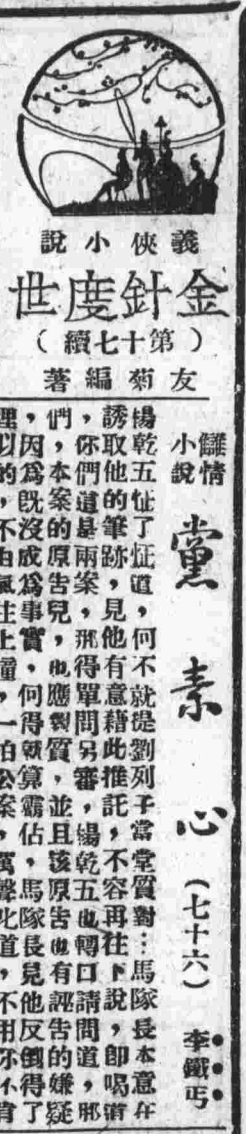 義俠小說
金針度世
（第十七續）
友菊編著
讎情
小說
黨素心
（七十六）
李鐵丐
楊乾五怔了怔道，何不就提劉列子當堂質對：馬隊長本意在
誘取他的筆跡，見他有意藉此推託，不容再往下說，卽喝道
，你們道是兩案，那得單問另審，楊乾五也轉口請問道，那
們，本案的原告兒，也應對質，並且該原告也有誣告的嫌疑
，因爲既沒成爲事實，何得就算霸佔，馬隊長見他反倒得了
不由氣往上撞，一拍公案，厲聲叱道，不用你